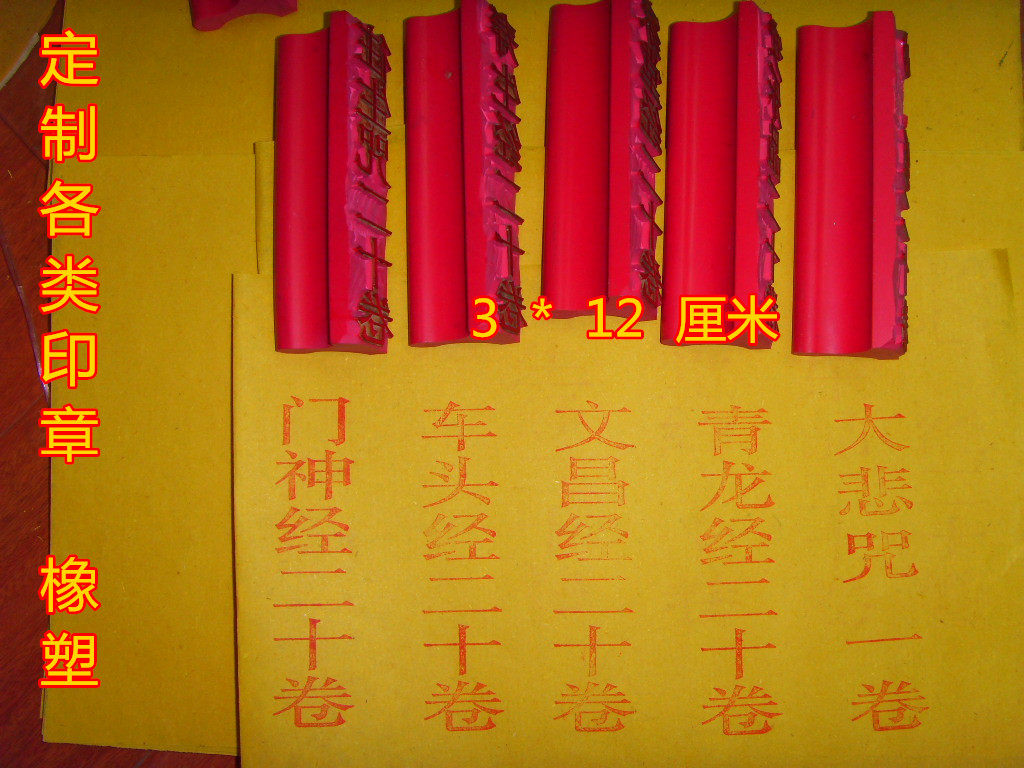 定制各类印章 橡塑
3 * 12 厘米
门神经二十卷
车头经二十卷
文昌经二十卷
青龙经二十卷
大悲咒 一卷